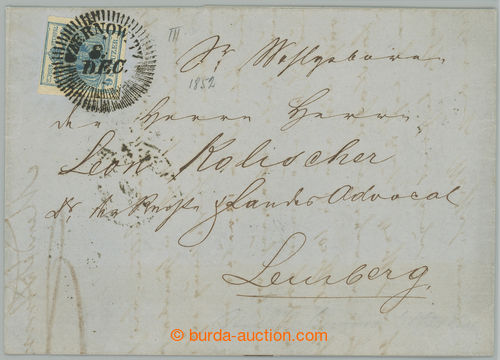 CZERNOWITZ
8
DEC.
III
1852
Sr Wohlgeboren
dem Herrn Herrn
Leon Kolischer
Dr der Rechte & Landes Advocat
Lemberg.
burda-auction.com